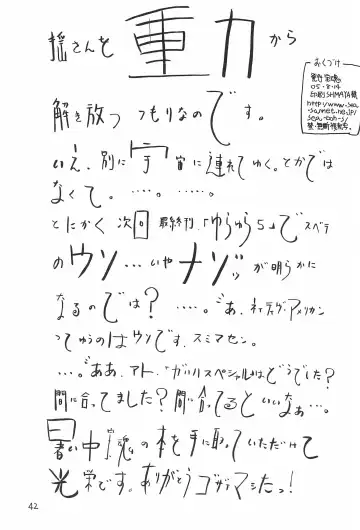 揺さんを重力から
解き放つつもりなのです。
いえ、別に宇宙に連れてゆく。とかでは
なくて。・・・・。・・・・・。
とにかく次回最終刊「ゆらゆら5」でスベテ
のウソ・・・いやナゾッが明らかに
なるのでは？・・・・。じゃあ、ネイティヴ・アメリカン
ってゆうのはウソです。スミマセン。
・・・。じゃああ、アト、「ガハリスペシャル」はどうでした？
間に合ってました？間に合ってるといいなぁ・・・。
暑い中、魂の本を手に取っていただけて
光栄です。ありがとうゴザイマシたっ！
おくづけ
05・8・14
印刷SHIMAYA様
http://www.sea
42